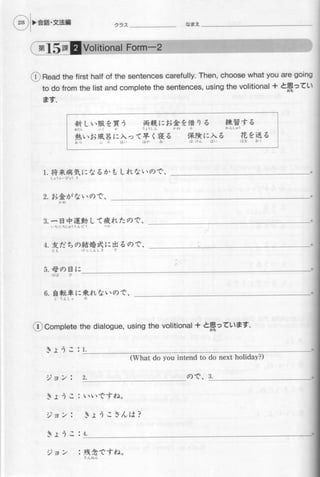 218 ▶会話・文法編 クラス なまえ
第15課 2 Volitional Form—2
① Read the first half of the sentences carefully. Then, choose what you are going
to do from the list and complete the sentences, using the volitional + と思ってい
ます.
新しい服を買う 両親にお金を借りる 練習する
熱いお風呂に入って早く寝る 保険に入る 花を送る
1. 将来病気になるかもしれないので、
2. お金がないので、
3. 一日中運動して疲れたので、
4. 友だちの結婚式に出るので、
5. 母の日に
6. 自転車に乗れないので、
Ⅱ Complete the dialogue, using the volitional + と思っています.
きょうこ：1.
(What do you intend to do next holiday?)
ジョン： 2. ので、3.
きょうこ：いいですね。
ジョン： きょうこさんは？
きょうこ：4.
ジョン ：残念ですね。